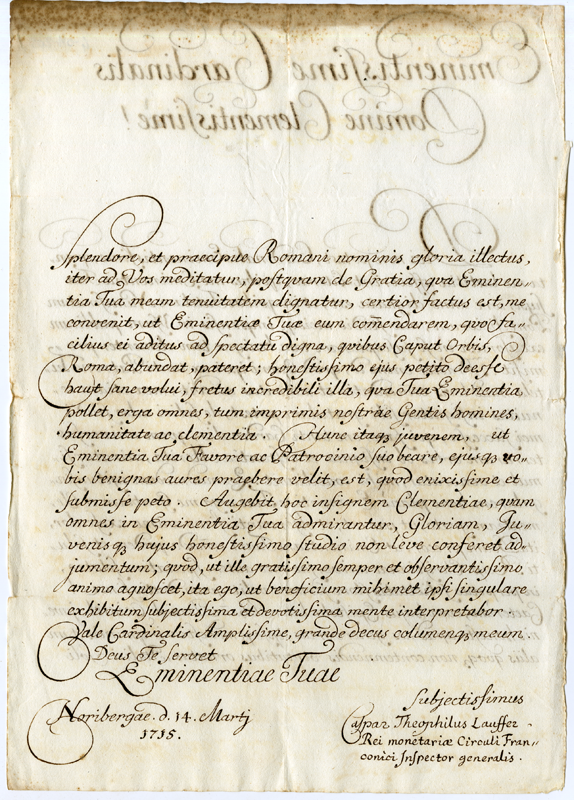 Eminentissime Cardinalis
Domine Clementissime!
Splendore, et praecipue Romani nominis gloria illectus,
iter ad Vos meditatur, postqvam de Gratia, qva Eminen„
tia Tua meam tenuitatem dignatur, certior factus est, me
convenit, ut Eminentiæ Tuæ eum com̄endarem, qvo fa„
cilius ei aditus ad spectatu digna, qvibus Caput Orbis,
Roma, abundat, pateret; honestissimo ejus petito deesse
haut sane volui, fretus incredibili illa, qva Tua Eminentia
pollet, erga omnes, tum imprimis nostræ Gentis homines,
humanitate ac clementia. Hunc itaqꝫ juvenem, ut
Eminentia Tua Favore ac Patrocinio suo beare, ejusqꝫ vo„
bis benignas aures praebere velit, est, qvod enixissime et
submisse peto. Augebit hoc insignem Clementiae, qvam
omnes in Eminentia Tua admirantur, Gloriam, Ju„
venisqꝫ hujus honestissimo studio non leve conferet ad„
jumentum; qvod, ut ille gratissimo semper et observantissimo
animo agnoscet, ita ego, ut beneficium mihimet ipsi singulare
exhibitum subjectissima et devotissima mente interpretabor.
Vale Cardinalis Amplissime, grande decus columenqꝫ meum.
Deus Te servet
Eminentiae Tuae
Noribergæ. d. 14. Martj
1715.
subjectissimus
Caspar Theophilus Lauffer
Rei monetariæ Circuli Fran„
conici Inspector generalis.